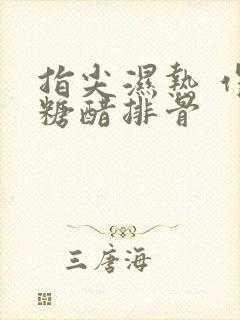 指尖濕熱
糖醋排骨
三唐海